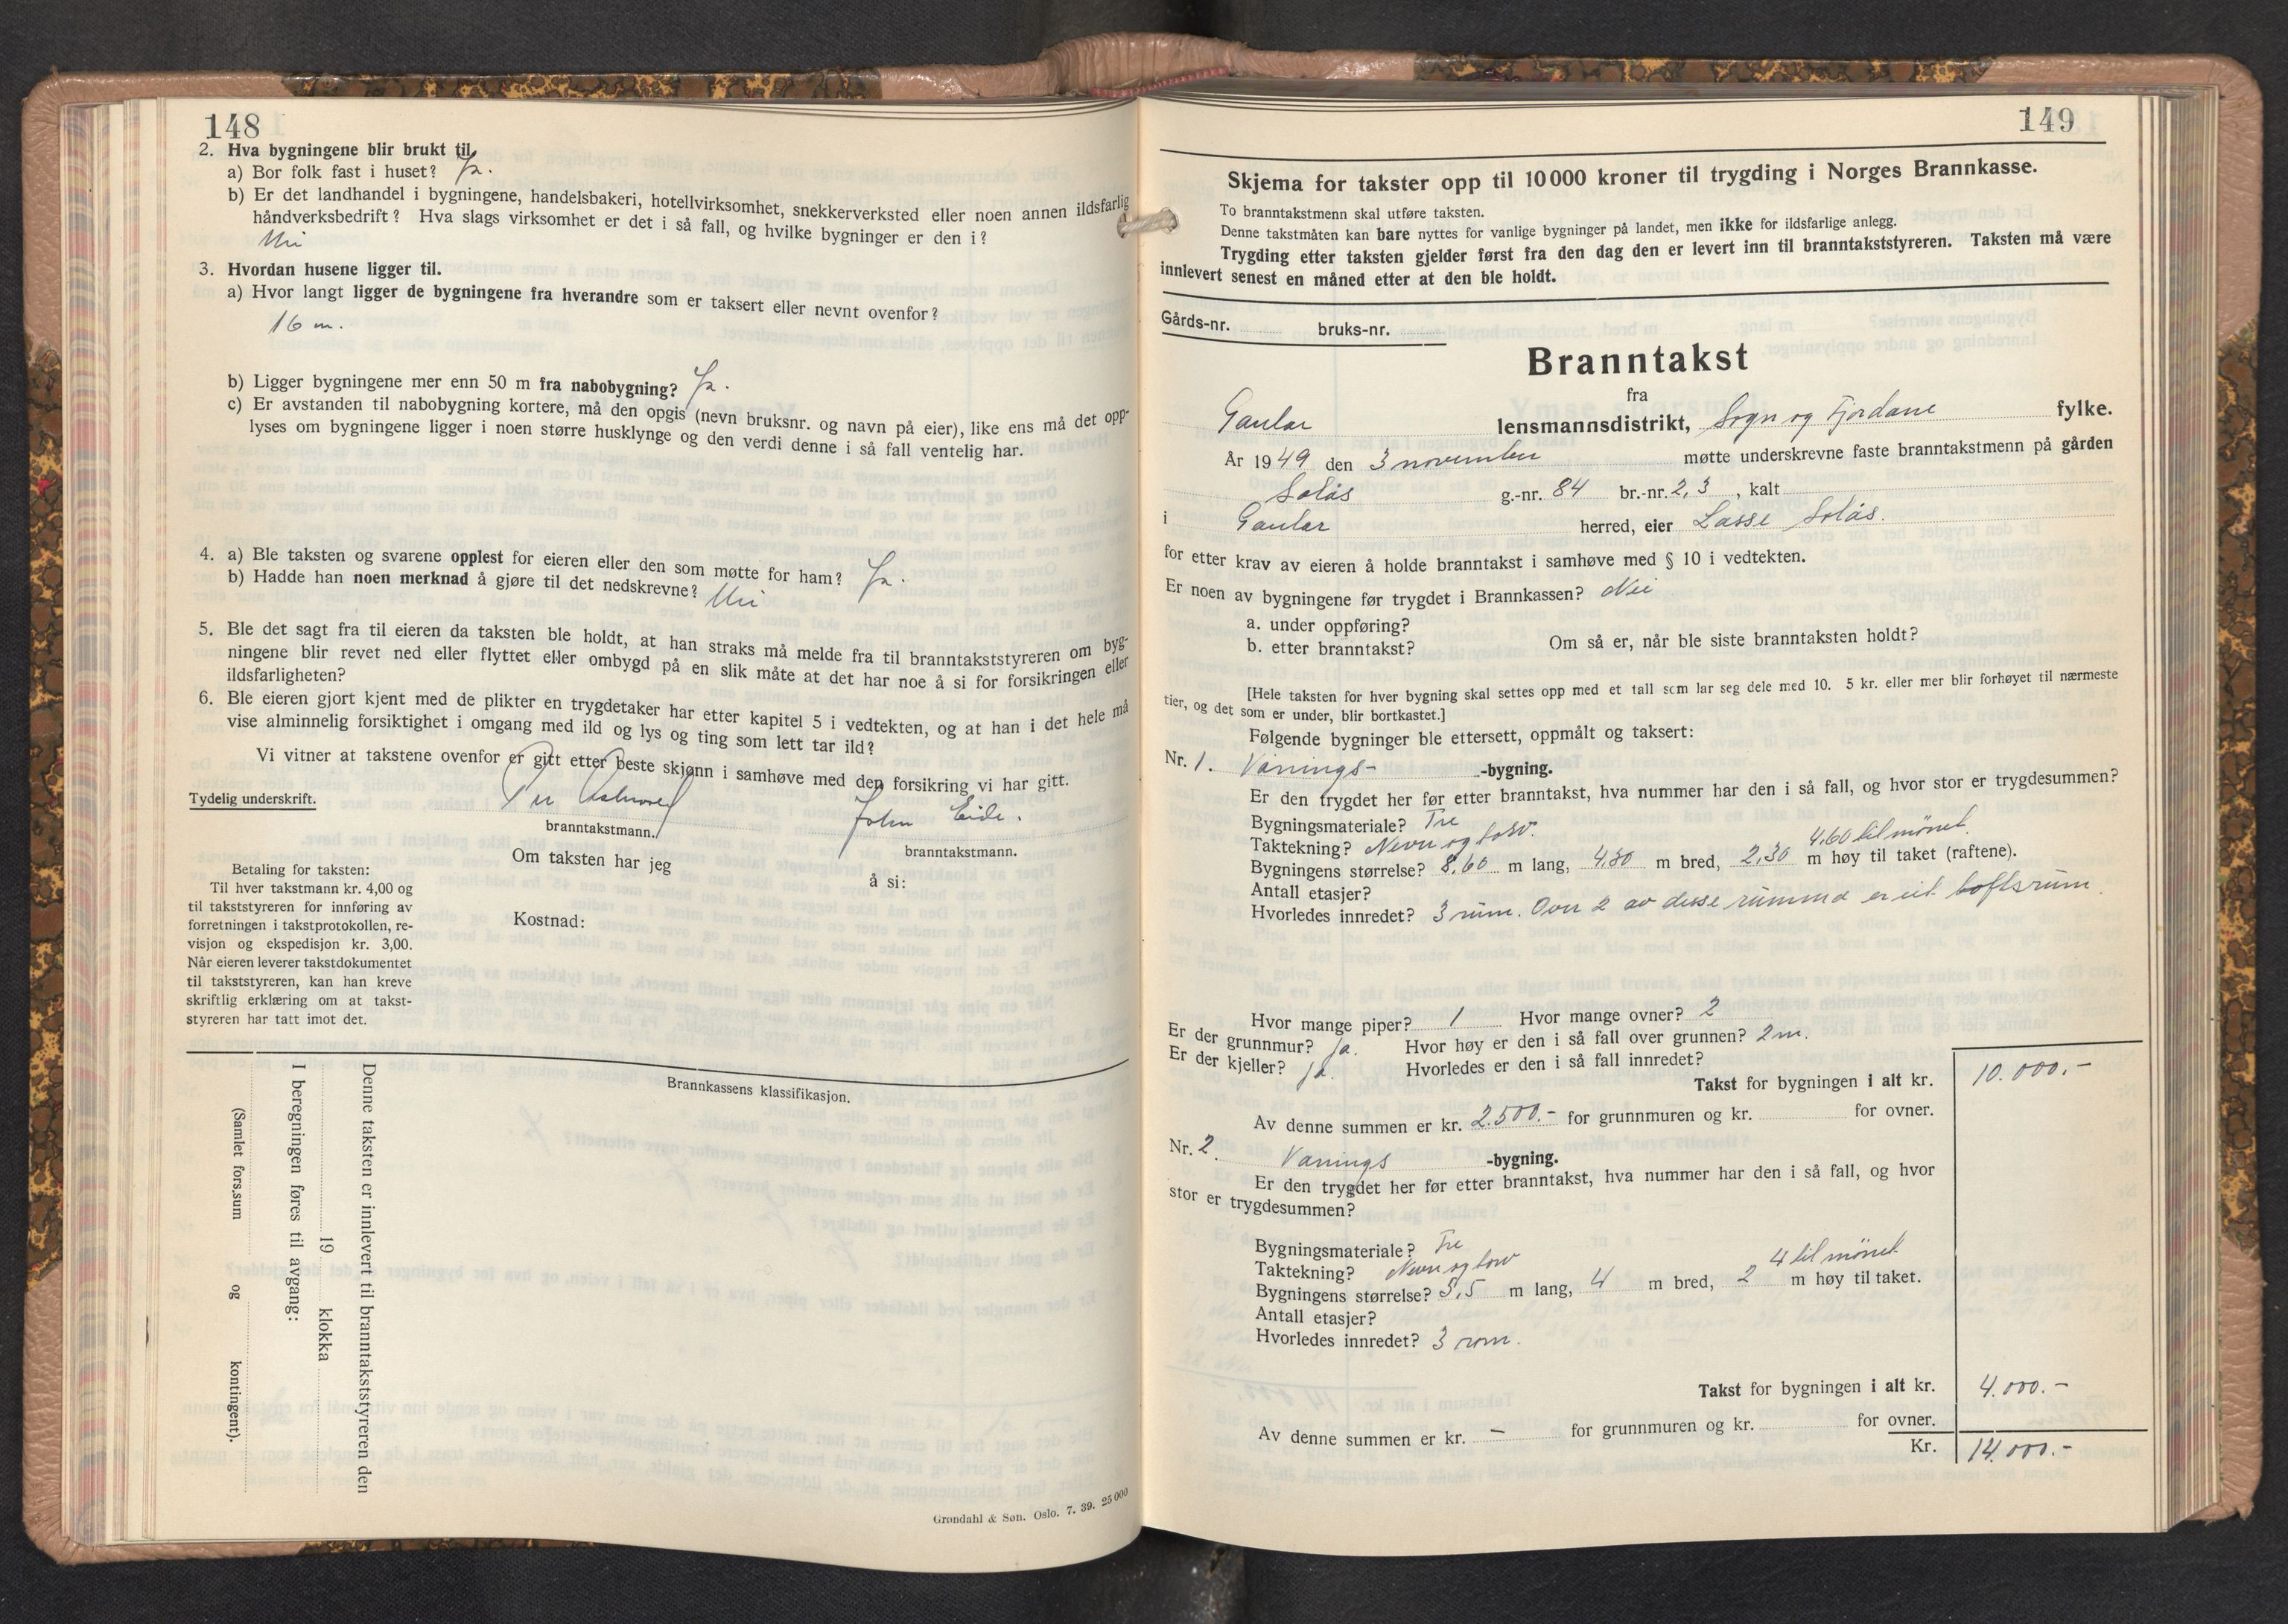 148
2. Hva bygningene blir brukt til.
a) Bor folk fast i huset? Ja.
b) Er det landhandel i bygningene, handelsbakeri, hotellvirksomhet, snekkerverksted eller noen annen ildsfarlig
håndverksbedrift? Hva slags virksomhet er det i så fall, og hvilke bygninger er den i?
Nei
3. Hvordan husene ligger til.
a) Hvor langt ligger de bygningene fra hverandre som er taksert eller nevnt ovenfor?
16 m.
b) Ligger bygningene mer enn 50 m fra nabobygning? Ja.
c) Er avstanden til nabobygning kortere, må den opgis (nevn bruksnr. og navn på eier), like ens må det opp-
lyses om bygningene ligger i noen større husklynge og den verdi denne i så fall ventelig har.
4. a) Ble taksten og svarene opplest for eieren eller den som møtte for ham? Ja.
b) Hadde han noen merknad å gjøre til det nedskrevne? Nei
5. Ble det sagt fra til eieren da taksten ble holdt, at han straks må melde fra til branntakststyreren om byg-
ningene blir revet ned eller flyttet eller ombygd på en slik måte at det har noe å si for forsikringen eller
ildsfarligheten?
6. Ble eieren gjort kjent med de plikter en trygdetaker har etter kapitel 5 i vedtekten, og at han i det hele må
vise alminnelig forsiktighet i omgang med ild og lys og ting som lett tar ild?
Vi vitner at takstene ovenfor er gitt etter beste skjønn i samhøve med den forsikring vi har gitt.
Tydelig underskrift. Per John Eide.
branntakstmann. branntakstmann.
Om taksten har jeg å si:
Kostnad:
Betaling for taksten:
Til hver takstmann kr. 4,00 og
til takststyreren for innføring av
forretningen i takstprotokollen, re-
visjon og ekspedisjon kr. 3,00.
Når eieren leverer takstdokumentet
til takststyreren, kan han kreve
skriftlig erklæring om at takst-
styreren har tatt imot det.
Brannkassens klassifikasjon.
Denne taksten er innlevert til branntakststyreren den
19 klokka
I beregningen føres til avgang:
(Samlet fors.sum og kontingent).
Grøndahl & Søn. Oslo. 7. 39. 25 000
149
Skjema for takster opp til 10 000 kroner til trygding i Norges Brannkasse.
To branntakstmenn skal utføre taksten.
Denne takstmåten kan bare nyttes for vanlige bygninger på landet, men ikke for ildsfarlige anlegg.
Trygding etter taksten gjelder først fra den dag den er levert inn til branntakststyreren. Taksten må være
innlevert senest en måned etter at den ble holdt.
Gårds-nr. bruks-nr.
Branntakst
fra
Gaular lensmannsdistrikt, Sogn og Fjordane fylke.
År 1949 den 3 november møtte underskrevne faste branntakstmenn på gården
Solås g.-nr. 84 br.-nr. 2, 3, kalt
i Gaular herred, eier Lasse Solås.
for etter krav av eieren å holde branntakst i samhøve med § 10 i vedtekten.
Er noen av bygningene før trygdet i Brannkassen? Nei
a. under oppføring?
b. etter branntakst? Om så er, når ble siste branntaksten holdt?
[Hele taksten for hver bygning skal settes opp med et tall som lar seg dele med 10. 5 kr. eller mer blir forhøyet til nærmeste
tier, og det som er under, blir bortkastet.]
Følgende bygninger ble ettersett, oppmålt og taksert:
Nr. 1. Vånings- -bygning.
Er den trygdet her før etter branntakst, hva nummer har den i så fall, og hvor stor er trygdesummen?
Bygningsmateriale? Tre
Taktekning? Nevr og torv. 4,60 til mönet.
Bygningens størrelse? 8,60 m lang, 4,80 m bred, 2,30 m høy til taket (raftene).
Antall etasjer?
Hvorledes innredet? 3 rum. Over 2 av disse rumma er eit loftsrum.
Hvor mange piper? 1 Hvor mange ovner? 2
Er der grunnmur? ja. Hvor høy er den i så fall over grunnen? 2 m.
Er der kjeller? ja. Hvorledes er den i så fall innredet?
Takst for bygningen i alt kr. 10.000.-
Av denne summen er kr. 2.500.- for grunnmuren og kr. for ovner.
Nr. 2. Vånings -bygning.
Er den trygdet her før etter branntakst, hva nummer har den i så fall, og hvor
stor er trygdesummen?
Bygningsmateriale? Tre
Taktekning? Nevr og torv 4 til mönet
Bygningens størrelse? 5,5 m lang, 4 m bred, 2 m høy til taket.
Antall etasjer?
Hvorledes innredet? 3 rom.
Takst for bygningen i alt kr. 4.000.-
Av denne summen er kr. - for grunnmuren og kr. for ovner.
Kr. 14.000.-